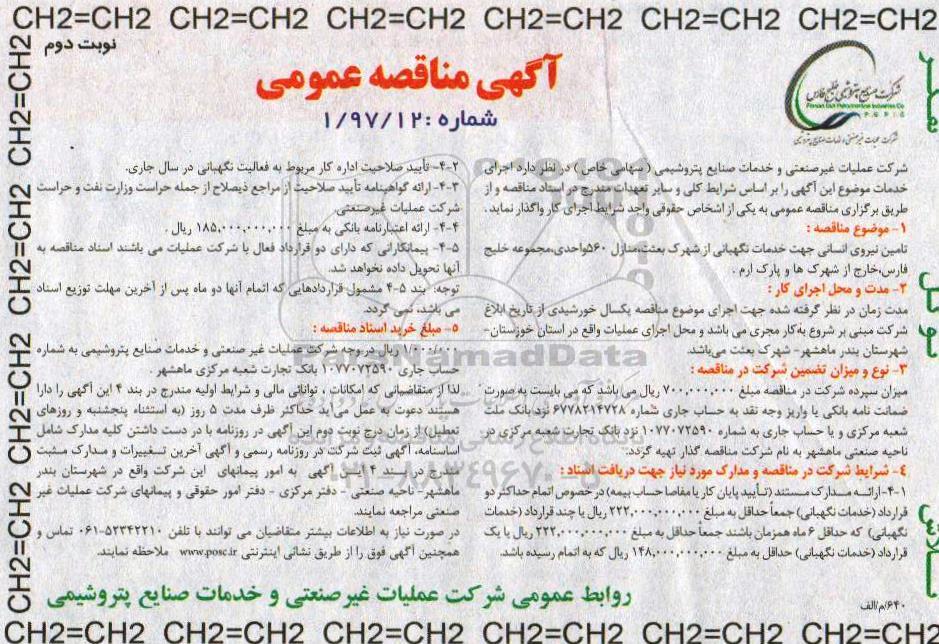 CH2=CH2 CH2=CH2 CH2=CH2 CH2=CH2 CH2=CH2 CH2=CH2
نوبت دوم
آگهی مناقصه عمومی
شماره :۱/۹۷/۱۲
شرکت صنایع پتروشیمی خلیج فارس
Persian Gulf Petrochemical Industries Co
P.G.P.I.C
شرکت عملیات غیرصنعتی و خدمات صنایع پتروشیمی
شرکت عملیات غیرصنعتی و خدمات صنایع پتروشیمی ( سهامی خاص ) در نظر دارد اجرای
خدمات موضوع این آگهی را بر اساس شرایط کلی و سایر تعهدات مندرج در اسناد مناقصه و از
طریق برگزاری مناقصه عمومی به یکی از اشخاص حقوقی واجد شرایط اجرای کار واگذار نماید .
۱- موضوع مناقصه :
تامین نیروی انسانی جهت خدمات نگهبانی از شهرک بعثت،منازل ۵۶۰واحدی،مجموعه خلیج
فارس،خارج از شهرک ها و پارک ارم .
۲- مدت و محل اجرای کار :
مدت زمان در نظر گرفته شده جهت اجرای موضوع مناقصه یکسال خورشیدی از تاریخ ابلاغ
شرکت مبنی بر شروع به کار مجری می باشد و محل اجرای عملیات واقع در استان خوزستان-
شهرستان بندر ماهشهر- شهرک بعثت می‌باشد.
۳- نوع و میزان تضمین شرکت در مناقصه :
میزان سپرده شرکت در مناقصه مبلغ ۷۰۰,۰۰۰,۰۰۰ ریال می باشد که می بایست به صورت
ضمانت نامه بانکی یا واریز وجه نقد به حساب جاری شماره ۶۷۷۸۲۱۴۷۲۸ نزد بانک ملت
شعبه مرکزی و یا حساب جاری به شماره ۱۰۷۷۰۷۲۵۹۰ نزد بانک تجارت شعبه مرکزی در
ناحیه صنعتی ماهشهر به نام شرکت مناقصه گذار تهیه گردد.
۴- شرایط شرکت در مناقصه و مدارک مورد نیاز جهت دریافت اسناد :
۴-۱- ارائـه مـدارک مستند (تـأیید پایان کار یا مفاصا حساب بیمه) در خصوص اتمام حداکثر دو
قرارداد (خدمات نگهبانی) جمعاً حداقل به مبلغ ۲۲۲,۰۰۰,۰۰۰,۰۰۰ ریال یا چند قرارداد (خدمات
نگهبانی) که حداقل ۶ ماه همزمان باشند جمعاً حداقل به مبلغ ۲۲۲,۰۰۰,۰۰۰,۰۰۰ ریال یا یک
قرارداد (خدمات نگهبانی) حداقل به مبلغ ۱۴۸,۰۰۰,۰۰۰,۰۰۰ ریال که به اتمام رسیده باشد.
۴-۲- تأیید صلاحیت اداره کار مربوط به فعالیت نگهبانی در سال جاری.
۴-۳- ارائه گواهینامه تأیید صلاحیت از مراجع ذیصلاح از جمله حراست وزارت نفت و حراست
شرکت عملیات غیرصنعتی.
۴-۴- ارائه اعتبارنامه بانکی به مبلغ ۱۸۵,۰۰۰,۰۰۰,۰۰۰ ریال .
۴-۵- پیمانکارانی که دارای دو قرارداد فعال با شرکت عملیات می باشند اسناد مناقصه به
آنها تحویل داده نخواهد شد.
توجه: بند ۵-۴ مشمول قراردادهایی که اتمام آنها دو ماه پس از آخرین مهلت توزیع اسناد
می باشد، نمی گردد.
۵- مبلغ خرید اسناد مناقصه :
ریال در وجه شرکت عملیات غیر صنعتی و خدمات صنایع پتروشیمی به شماره
حساب جاری ۱۰۷۷۰۷۲۵۹۰ بانک تجارت شعبه مرکزی ماهشهر .
لذا از متقاضیانی که امکانات ، توانائی مالی و شرایط اولیه مندرج در بند ۴ این آگهی را دارا
هستند دعوت به عمل می آید حداکثر ظرف مدت ۵ روز (به استثناء پنجشنبه و روزهای
تعطیل) از زمان درج نوبت دوم این آگهی در روزنامه با در دست داشتن کلیه مدارک شامل
اساسنامه، آگهی ثبت شرکت در روزنامه رسمی و آگهی آخرین تـغییرات و مـدارک مثبت
مندرج در بـند ۴ این آگهی به امور پیمانهای این شرکت واقع در شهرستان بندر
ماهشهر- ناحیه صنعتی - دفتر مرکزی - دفتر امور حقوقی و پیمانهای شرکت عملیات غیر
صنعتی مراجعه نمایند.
در صورت نیاز به اطلاعات بیشتر متقاضیان می توانند با تلفن ۵۲۳۴۲۲۱۰-۰۶۱ تماس و
همچنین آگهی فوق را از طریق نشانی اینترنتی www.posc.ir ملاحظه نمایند.
روابط عمومی شرکت عملیات غیرصنعتی و خدمات صنایع پتروشیمی
۶۴۰/م/الف
CH2=CH2 CH2=CH2 CH2=CH2 CH2=CH2 CH2=CH2 CH2=CH2
CH2=CH2 CH2=CH2 CH2=CH2 CH2=CH2
ParsNamadData
۰۲۱-۸۸۳۴۹۶۷۰-۵